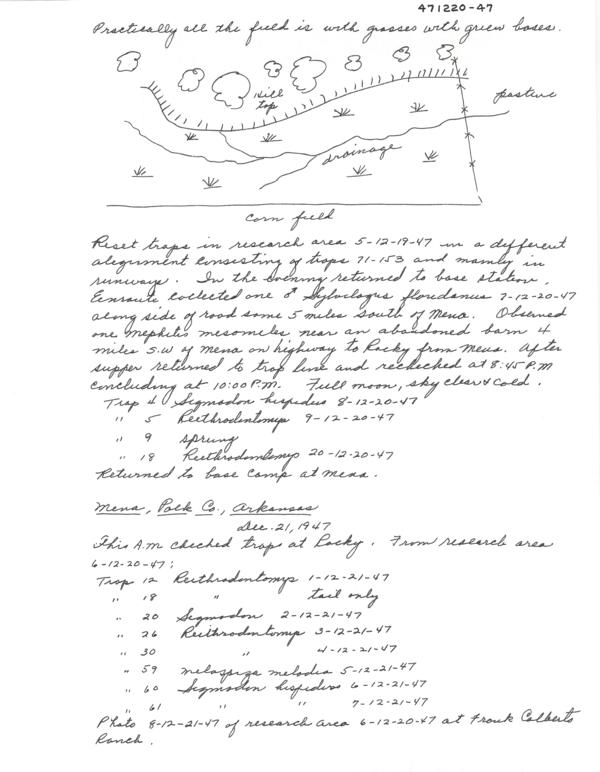 471220-47
Practically all the field is with grasses with green bases.
Hill
top
pasture
drainage
Corn field
Reset traps in research area 5-12-19-47 in a different
alignment consisting of traps 71-153 and mainly in
runways. In the evening returned to base station.
Enroute collected one ♂ Sylvilagus floridanus 7-12-20-47
along side of road some 5 miles south of Mena. Observed
one mephitis mesomeles near an abandoned barn 4
miles S.W of Mena on highway to Rocky from Mena. After
supper returned to trap line and rechecked at 8:45 P.M
concluding at 10:00 P.M. Full moon, sky clear & cold.
Trap 4 Sigmodon hispidus 8-12-20-47
" 5 Reithrodontomys 9-12-20-47
" 9 sprung
" 18 Reithrodontomys 20-12-20-47
Returned to base camp at Mena.
Mena, Polk Co., Arkansas
Dec. 21, 1947
This A.M checked traps at Rocky. From research area
6-12-20-47:
Trap 12 Reithrodontomys 1-12-21-47
" 18 " tail only
" 20 Sigmodon 2-12-21-47
" 26 Reithrodontomys 3-12-21-47
" 30 " 4-12-21-47
" 59 melospiza melodia 5-12-21-47
" 60 Sigmodon hispidus 6-12-21-47
" 61 " " 7-12-21-47
Photo 8-12-21-47 of research area 6-12-20-47 at Frank Colberts
Ranch.